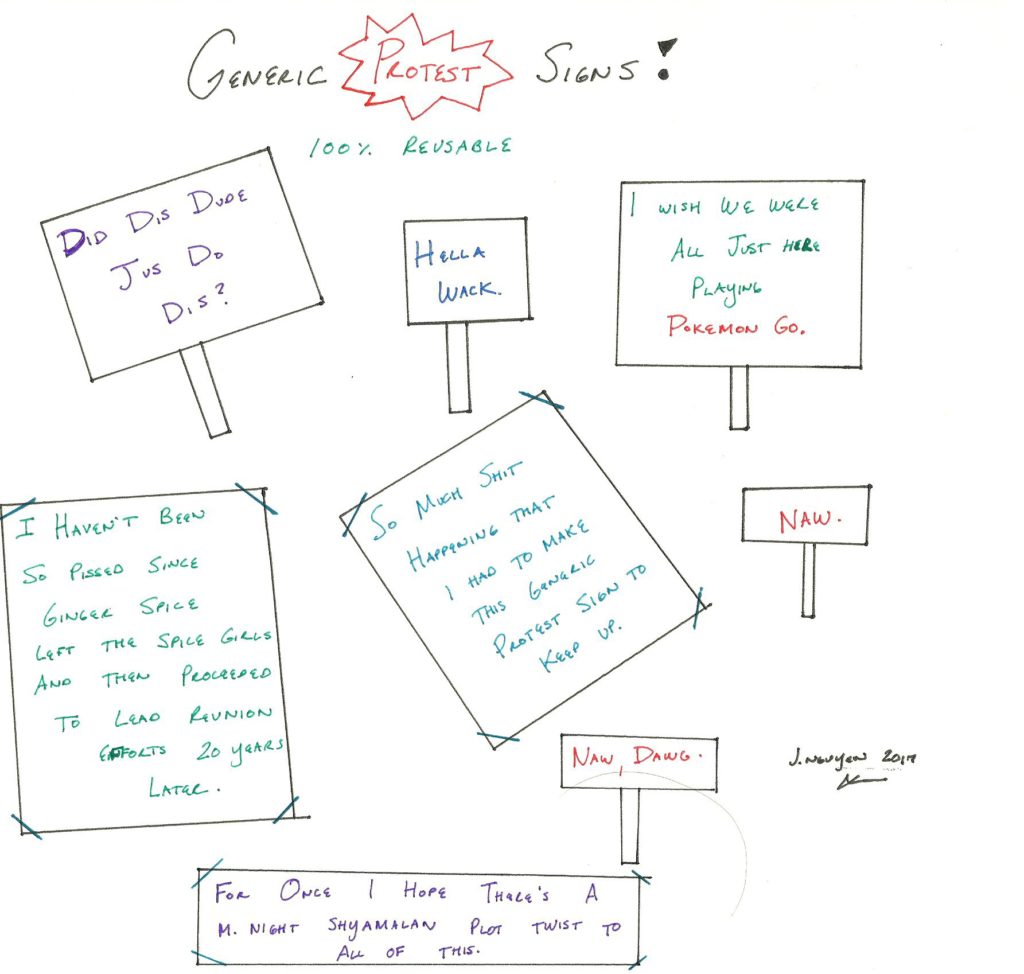 GENERIC PROTEST SIGNS!
100% REUSABLE
DID DIS DUDE
JUS DO
DIS?
HELLA
WACK.
I WISH WE WERE
ALL JUST HERE
PLAYING
POKEMON GO.
I HAVEN'T BEEN
SO PISSED SINCE
GINGER SPICE
LEFT THE SPICE GIRLS
AND THEN PROCEEDED
TO LEAD REUNION
EFFORTS 20 YEARS
LATER.
SO MUCH SHIT
HAPPENING THAT
I HAD TO MAKE
THIS GENERIC
PROTEST SIGN TO
KEEP UP.
NAW.
NAW, DAWG.
FOR ONCE I HOPE THERE'S A
M. NIGHT SHYAMALAN PLOT TWIST TO
ALL OF THIS.
J. NGUYEN 2017